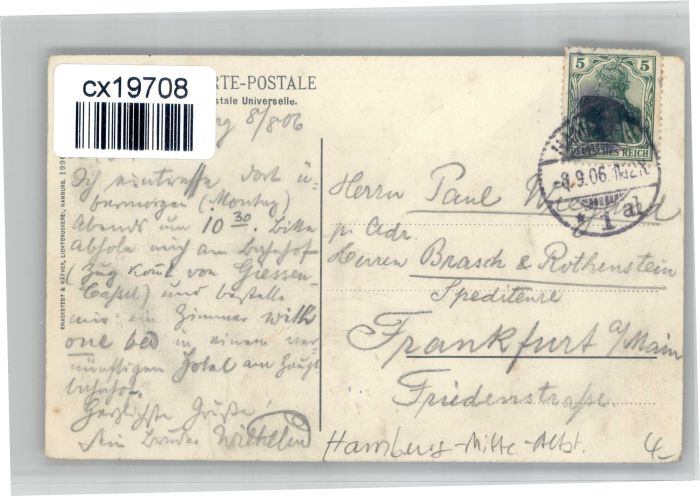 cx19708
RTE-POSTALE
stale Universelle.
rg 8/8 06
Ich eintreffe dort ü-
bermorgen (Montag)
Abends um 10 30. Bitte
Abhole mich am Bahnhof
(Zug kommt von Giessen-
Cassel) und bestelle
mir ein Zimmer with
one bed in einem ver-
nünftigen Hotel am Haupt
bahnhof.
Herzlichste Grüße!
Dein Bruder Wilhelm
KNACKSTEDT & NÄTHER, LICHTDRUCKEREI, HAMBURG. 199
5 5
DEUTSCHES REICH
-8.9.06.
* 1 ab
Herrn Paul
pr. Adr.
Herren Brasch & Rothenstein
Spediteure
Frankfurt a/Main
Friedenstraße.
Hamburg-Mitte-Altst.
4-